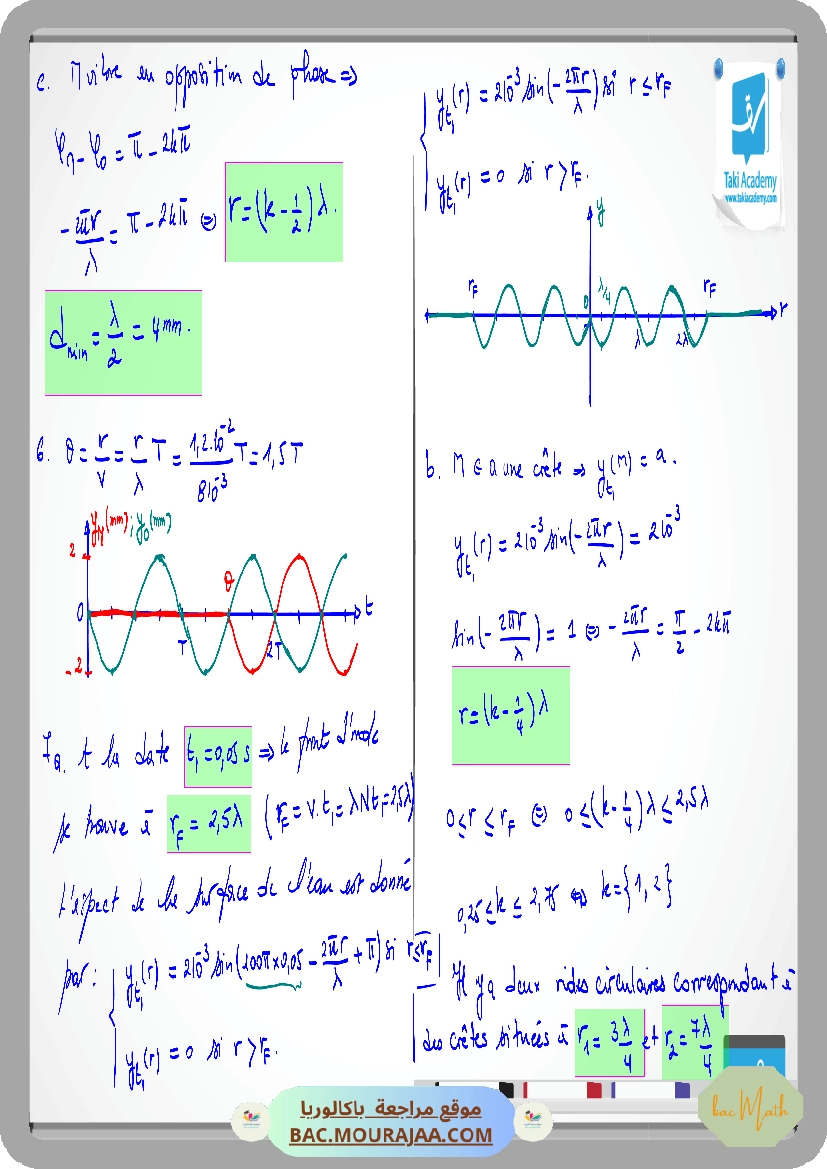 c. M vibre en opposition de phase ⇒
φM - φ0 = π - 2kπ
- 2πr/λ = π - 2kπ ⇔ r = (k - 1/2) λ.
dmin = λ/2 = 4 mm.
6. θ = r/v = r/λ T = 1,2.10⁻²/8 10⁻³ T = 1,5 T
yM (mm) ; y0 (mm)
2
θ
0
T
2T
t
-2
7a. A la date t₁ = 0,05 s ⇒ le front d'onde
se trouve à rF = 2,5λ (rF = v.t₁ = λNt₁ = 2,5λ)
L'aspect de la surface de l'eau est donné
par : yt₁(r) = 2 10⁻³ sin(100π×0,05 - 2πr/λ + π) si r ≤ rF
yt₁(r) = 0 si r > rF.
yt₁(r) = 2 10⁻³ sin(- 2πr/λ) si r ≤ rF
yt₁(r) = 0 si r > rF.
Taki Academy
www.takiacademy.com
y
rF
0
λ/4
rF
r
λ
2λ
b. M ∈ a une crête ⇒ yt₁(M) = a.
yt₁(r) = 2 10⁻³ sin(- 2πr/λ) = 2 10⁻³
sin(- 2πr/λ) = 1 ⇔ - 2πr/λ = π/2 - 2kπ
r = (k - 1/4) λ
0 ≤ r ≤ rF ⇔ 0 ≤ (k - 1/4) λ ≤ 2,5λ
0,25 ≤ k ≤ 2,75 ⇔ k = {1, 2}
Il y a deux rides circulaires correspondant à
des crêtes situées à r₁ = 3λ/4 et r₂ = 7λ/4
موقع مراجعة باكالوريا
BAC.MOURAJAA.COM
bac Math